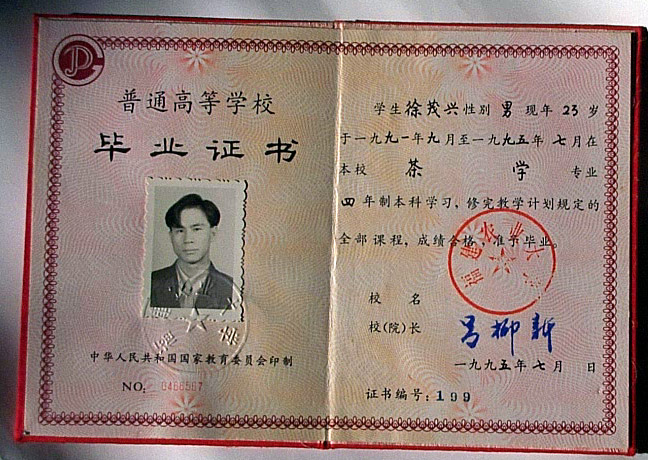 普通高等学校
毕业证书
中华人民共和国国家教育委员会印制
NO:
学生徐茂兴性别 男 现年 23 岁
于一九九一年九月至一九九五年 七月在
本校 茶 学 专业
四 年制本科学习，修完教学计划规定的
全部课程，成绩合格，准予毕业。
校 名
校(院)长 吕柳新
一九九五年七月 日
证书编号：199